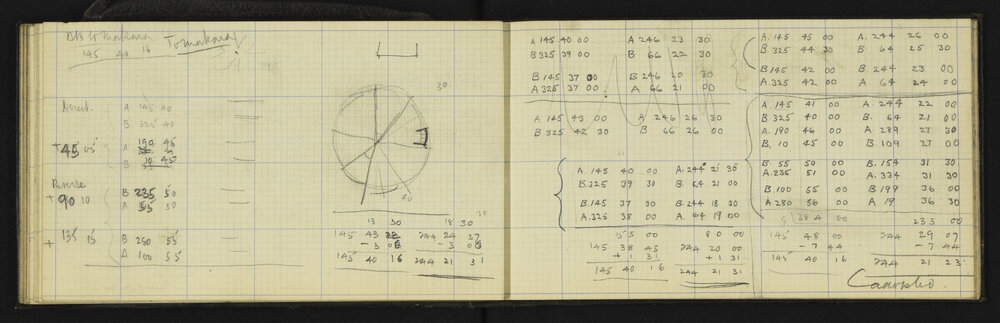 BB to makara Tomakaraf
145 40 16
Direct.
A 145 40
B. 325 40
+45 05' A 190 45
B. 10 45
Reverse
+90 10 B 235 50
A 55 50
+ 135 15' B 280 55'
A 100 55
30
60
120
13 30 18 30
145 43 244 24 37
-3 06 -3 06
145 40 16 244 21 31
A 145 40 00 A 246 23 30
B 325 39 00 B 66 22 30
B 145 37 00 B 246 20 30
A 325 37 00 A 66 21 00
A 145 43 00 A 246 26 30
B 325 42 30 B 66 26 00
A. 145 40 00 A. 244 21 30
B. 325 39 30 B. 64 21 00
B. 145 37 30 B. 244 18 30
A. 325 38 00 A. 64 19 00
155 00 80 00
145 38 45 244 20 00
+ 1 31 + 1 31
145 40 16 244 21 31
A. 145 45 00 A. 244 26 00
B 325 44 30 B 64 25 30
B 145 42 00 B. 244 23 00
A. 325 42 00 A 64 24 00
A. 145 41 00 A 244 22 00
B. 325 40 00 B. 64 21 00
A. 190 46 00 A 289 27 30
B. 10 45 00 B. 109 27 00
B. 55 50 00 B. 154 31 30
A. 235 51 00 A. 334 31 30
B. 100 55 00 B 199 36 00
A 280 56 00 A 19 36 30
8 384 00 233 00
145 48 00 244 29 07
-7 44 -7 44
145 40 16 244 21 23